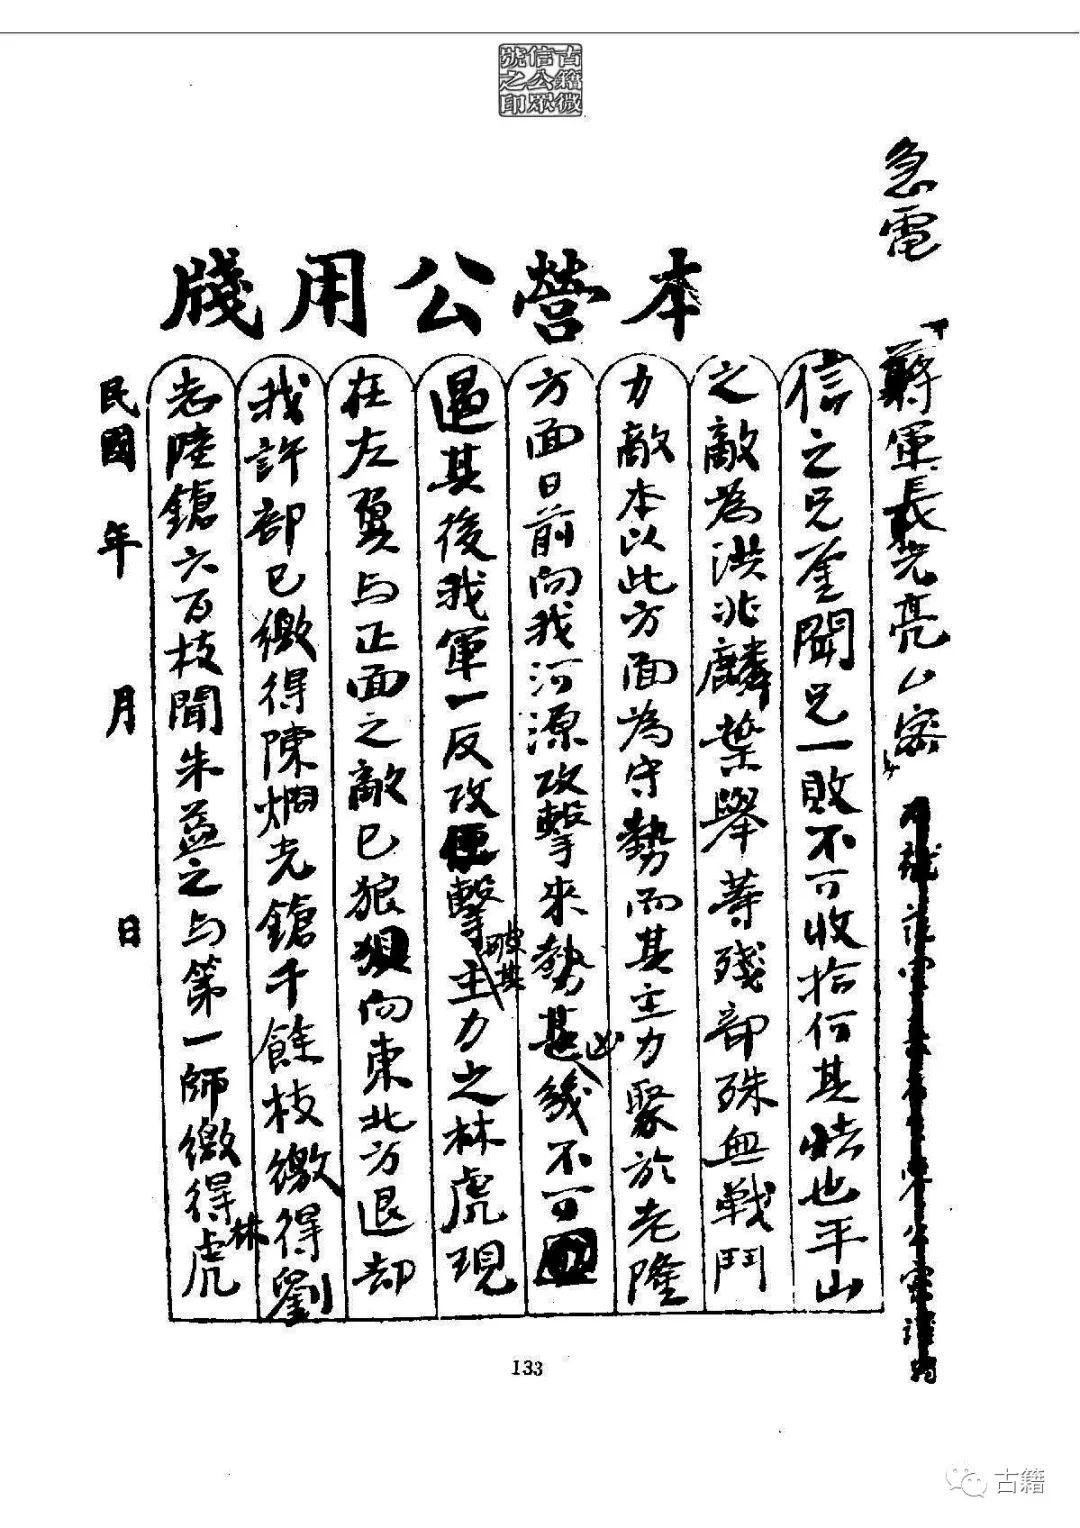 古籍微
信公眾
號之印
急電
本營公用牋
蔣軍長光亮公密
信之兄鑒聞兄一敗不可收拾何其怯也平山
之敵為洪兆麟葉舉等殘部殊無戰鬥
力敵本以此方面為守勢而其主力聚於老隆
方面日前向我河源攻擊來勢甚凶幾不可
遏其後我軍一反攻擊破其主力之林虎現
在左翼与正面之敵已狼狽向東北方退却
我許部已繳得陳烱光鎗千餘枝繳得劉
志陸鎗六百枝聞朱益之与第一師繳得林虎
民國 年 月 日
133
古籍